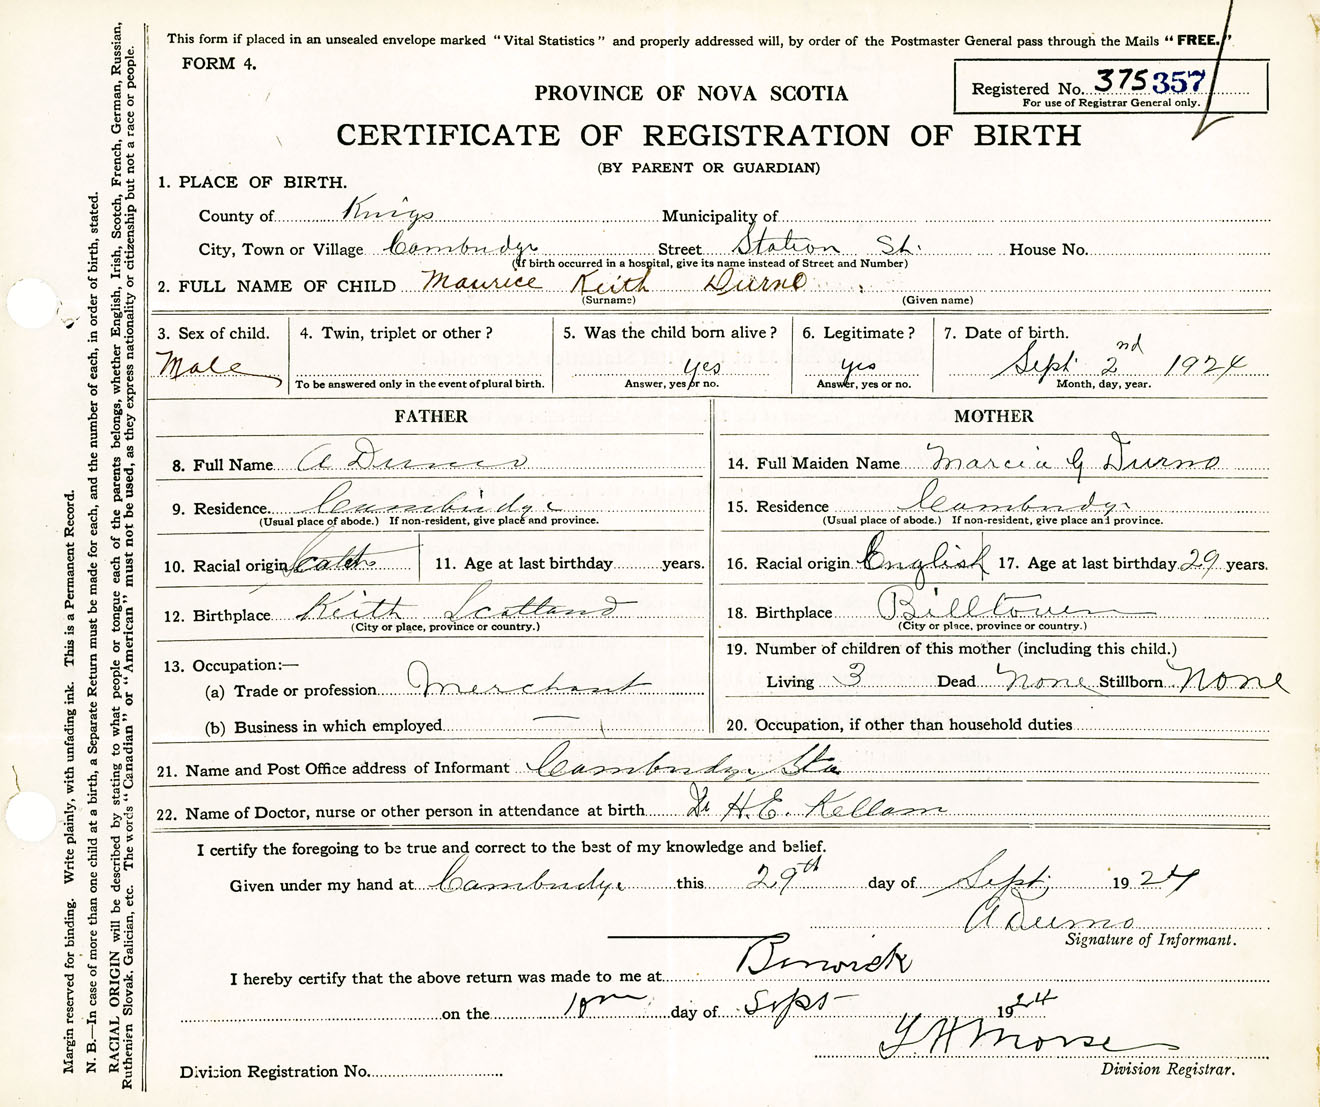 This form if placed in an unsealed envelope marked "Vital Statistics" and properly addressed will, by order of the Postmaster General pass through the Mails "FREE."
FORM 4.
Registered No. 375357
For use of Registrar General only.
PROVINCE OF NOVA SCOTIA
CERTIFICATE OF REGISTRATION OF BIRTH
(BY PARENT OR GUARDIAN)
1. PLACE OF BIRTH.
County of Kings Municipality of
City, Town or Village Cambridge Street Station St. House No.
(If birth occurred in a hospital, give its name instead of Street and Number)
2. FULL NAME OF CHILD Maurice Keith Durno
(Surname) (Given name)
3. Sex of child. Male
4. Twin, triplet or other?
To be answered only in the event of plural birth.
5. Was the child born alive? yes
Answer, yes or no.
6. Legitimate? yes
Answer, yes or no.
7. Date of birth.
Sept 2nd 1924
Month, day, year.
FATHER
8. Full Name A Durno
9. Residence. Cambridge
(Usual place of abode.) If non-resident, give place and province.
10. Racial origin Scotch 11. Age at last birthday years.
12. Birthplace Keith Scotland
(City or place, province or country.)
13. Occupation:—
(a) Trade or profession Merchant
(b) Business in which employed —
MOTHER
14. Full Maiden Name Marcia G Durno
15. Residence Cambridge
(Usual place of abode.) If non-resident, give place and province.
16. Racial origin English 17. Age at last birthday 29 years.
18. Birthplace Billtown
(City or place, province or country.)
19. Number of children of this mother (including this child.)
Living 3 Dead None Stillborn None
20. Occupation, if other than household duties
21. Name and Post Office address of Informant Cambridge Sta
22. Name of Doctor, nurse or other person in attendance at birth Dr H.E. Kellam
I certify the foregoing to be true and correct to the best of my knowledge and belief.
Given under my hand at Cambridge this 29th day of Sept. 1924
A Durno
Signature of Informant.
I hereby certify that the above return was made to me at Berwick
on the day of Sept 1924
Morse
Division Registration No. Division Registrar.
Margin reserved for binding. Write plainly, with unfading ink. This is a Permanent Record.
N. B.—In case of more than one child at a birth, a Separate Return must be made for each, and the number of each, in order of birth, stated.
RACIAL ORIGIN will be described by stating to what people or tongue each of the parents belongs, whether English, Irish, Scotch, French, German, Russian,
Ruthenien Slovak, Galician, etc. The words "Canadian" or "American" must not be used, as they express nationality or citizenship but not a race or people.